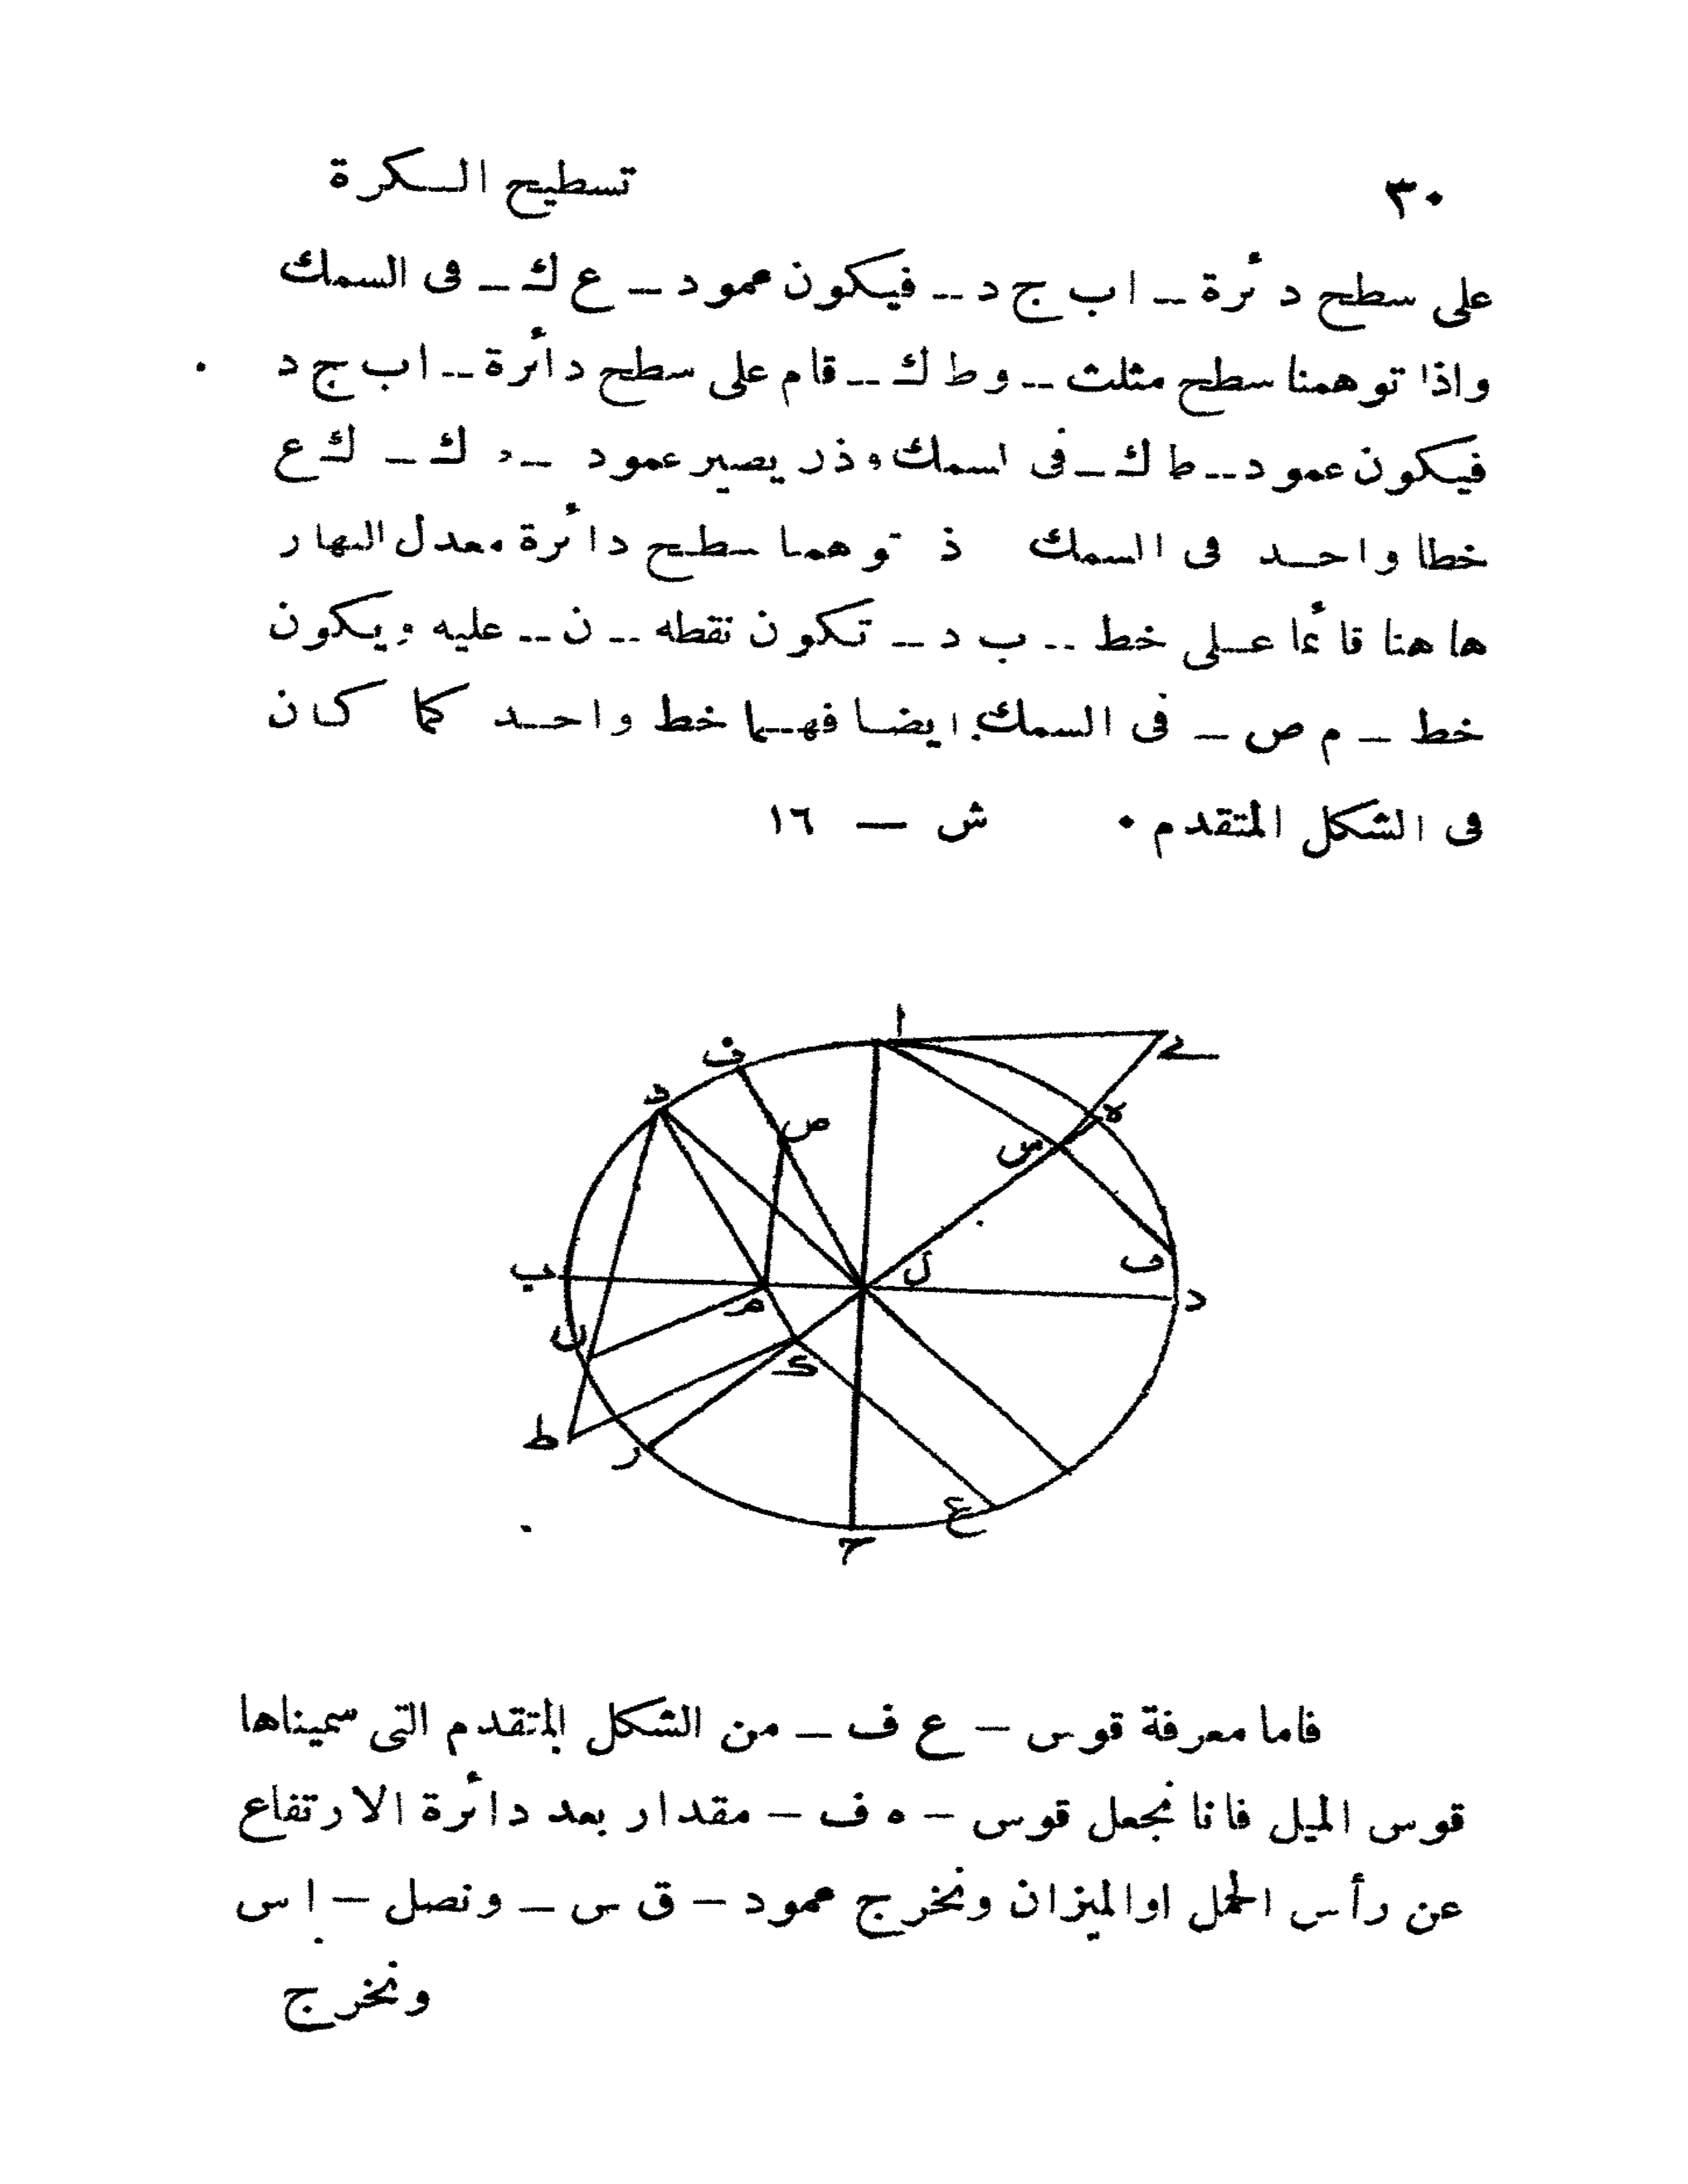 ٣٠ تسطيح الكرة
على سطح دئرة -- ا ب ج د -- فيكون عمود -- ع ك -- فى السمك
واذا توهمنا سطح مثلث -- و ط ك -- قام على سطح دائرة -- ا ب ج د
فيكون عمود -- ط ك -- فى يصير عمود -- ك -- ك ع
خطا واحد فى السمك سطح دائرة معدل النهار
ها هنا قائما على خط -- ب د -- تكون نقطه -- ن -- عليه ويكون
خط -- م ص -- فى السمك ايضا فهما خط واحد كما كان
فى الشكل المتقدم ٠ ش — ١٦
ا
ف
ى
ص
ه
س
ب
ل
ف
د
م
ن
ك
ط
ر
ع
ح
فاما معرفة قوس -- ع ف -- من الشكل المتقدم التى سميناها
قوس الميل فانا نجعل قوس -- ه ف -- مقدار بعد دائرة الارتفاع
عن رأس الحمل اوالميزان ونخرج عمود -- ق س -- ونصل -- ا س
ونخرج